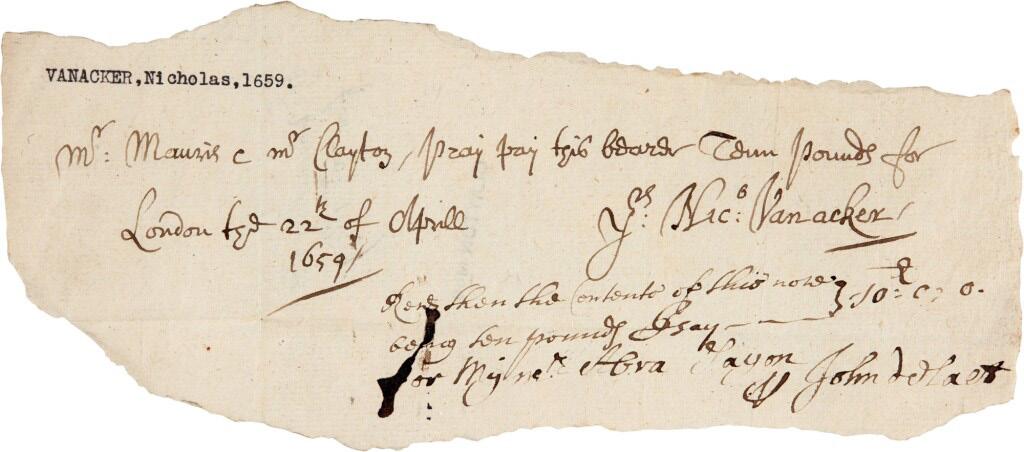 VANACKER,Nicholas,1659.
Mr: Mauris & mr Clayton, pray pay this bearer Tenn pounds for
London the 22th of Aprill
1659
Yrs: Nico: Vanacker
Recd then the Contents of this note
being ten pounds I say
10£: 0: 0.
for My mr Abra
John